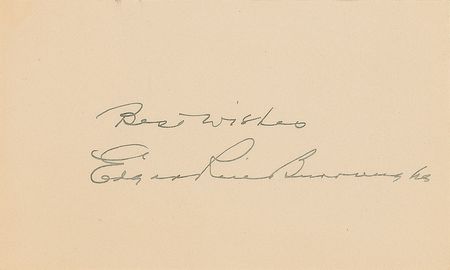 Best Wishes
Edgar Rice Burroughs